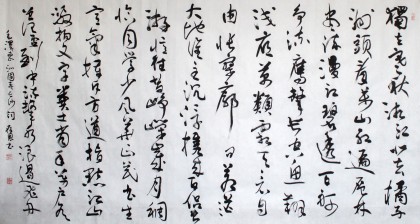 獨立寒秋湘江北去橘子
洲頭看万山紅遍層林
盡染漫江碧透百舸
爭流鷹擊長空魚翔
淺底萬類霜天竞自
由悵寥廓问蒼茫
大地誰主沉浮攜來百侣曾
游憶往昔崢嶸歲月稠
恰同學少年風華正茂書生
意氣揮斥方遒指點江山
激揚文字糞土當年萬户
侯曾記否到中流擊水浪遏飛舟
毛澤東沁園春長沙詞